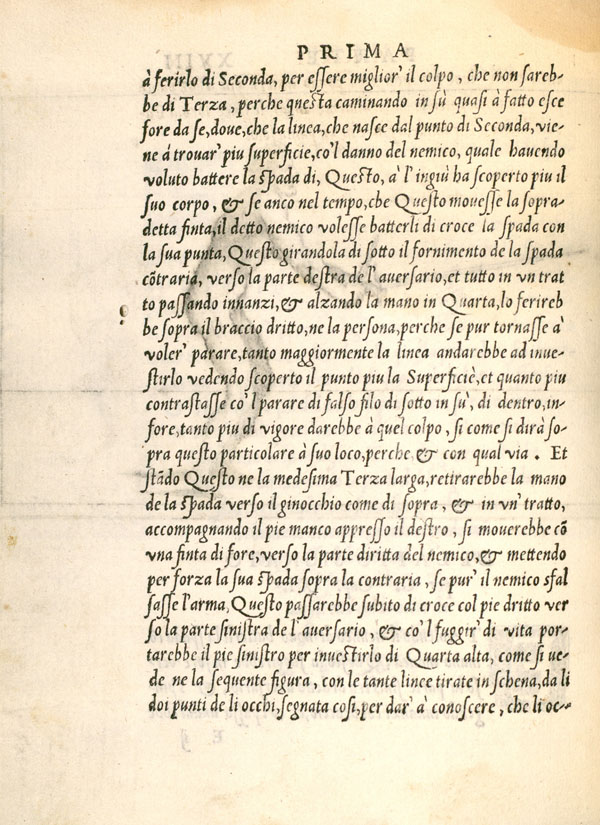 PRIMA
à ferirlo di Seconda, per eſſere miglior' il colpo, che non ſareb-
be di Terza, perche queſta caminando in sù quaſi à fatto eſce
fore da ſe, doue, che la linea, che naſce dal punto di Seconda, vie-
ne á trouar' piu ſuperficie, co'l danno del nemico, quale hauendo
voluto battere la ſpada di, Queſto, à l'ingiù ha ſcoperto piu il
ſuo corpo, & ſe anco nel tempo, che Queſto moueſſe la ſopra-
detta finta, il detto nemico voleſſe batterli di croce la ſpada con
la ſua punta, Queſto girandola di ſotto il fornimento de la ſpada
cõtraria, verſo la parte deſtra de l'auerſario, et tutto in vn trat
to paſſando innanzi, & alzando la mano in Quarta, lo ferireb
be ſopra il braccio dritto, ne la perſona, perche ſe pur tornaſſe à
voler' parare, tanto maggiormente la linea andarebbe ad inue-
ſtirlo vedendo ſcoperto il punto piu la Superficiè, et quanto piu
contraſtaſſe co'l parare di falſo filo di ſotto in ſù, di dentro, in-
fore, tanto piu di vigore darebbe à quel colpo, ſi come ſi dirà ſo-
pra queſto particolare à ſuo loco, perche & con qual via. Et
ſtãdo Queſto ne la medeſima Terza larga, retirarebbe la mano
de la ſpada verſo il ginocchio come di ſopra, & in vn' tratto,
accompagnando il pie manco appreſſo il deſtro, ſi mouerebbe cõ
vna finta di fore, verſo la parte diritta del nemico, & mettendo
per forza la ſua ſpada ſopra la contraria, ſe pur' il nemico sfal
ſaſſe l'arma, Queſto paſſarebbe ſubito di croce col pie dritto ver
ſo la parte ſiniſtra de l'auerſario, & co'l fuggir' di vita por-
tarebbe il pie ſiniſtro per inueſtirlo di Quarta alta, come ſi ue-
de ne la ſequente figura, con le tante linee tirate in ſchena, da li
doi punti de li occhi, ſegnata coſi, per dar' à conoſcere, che li oc-